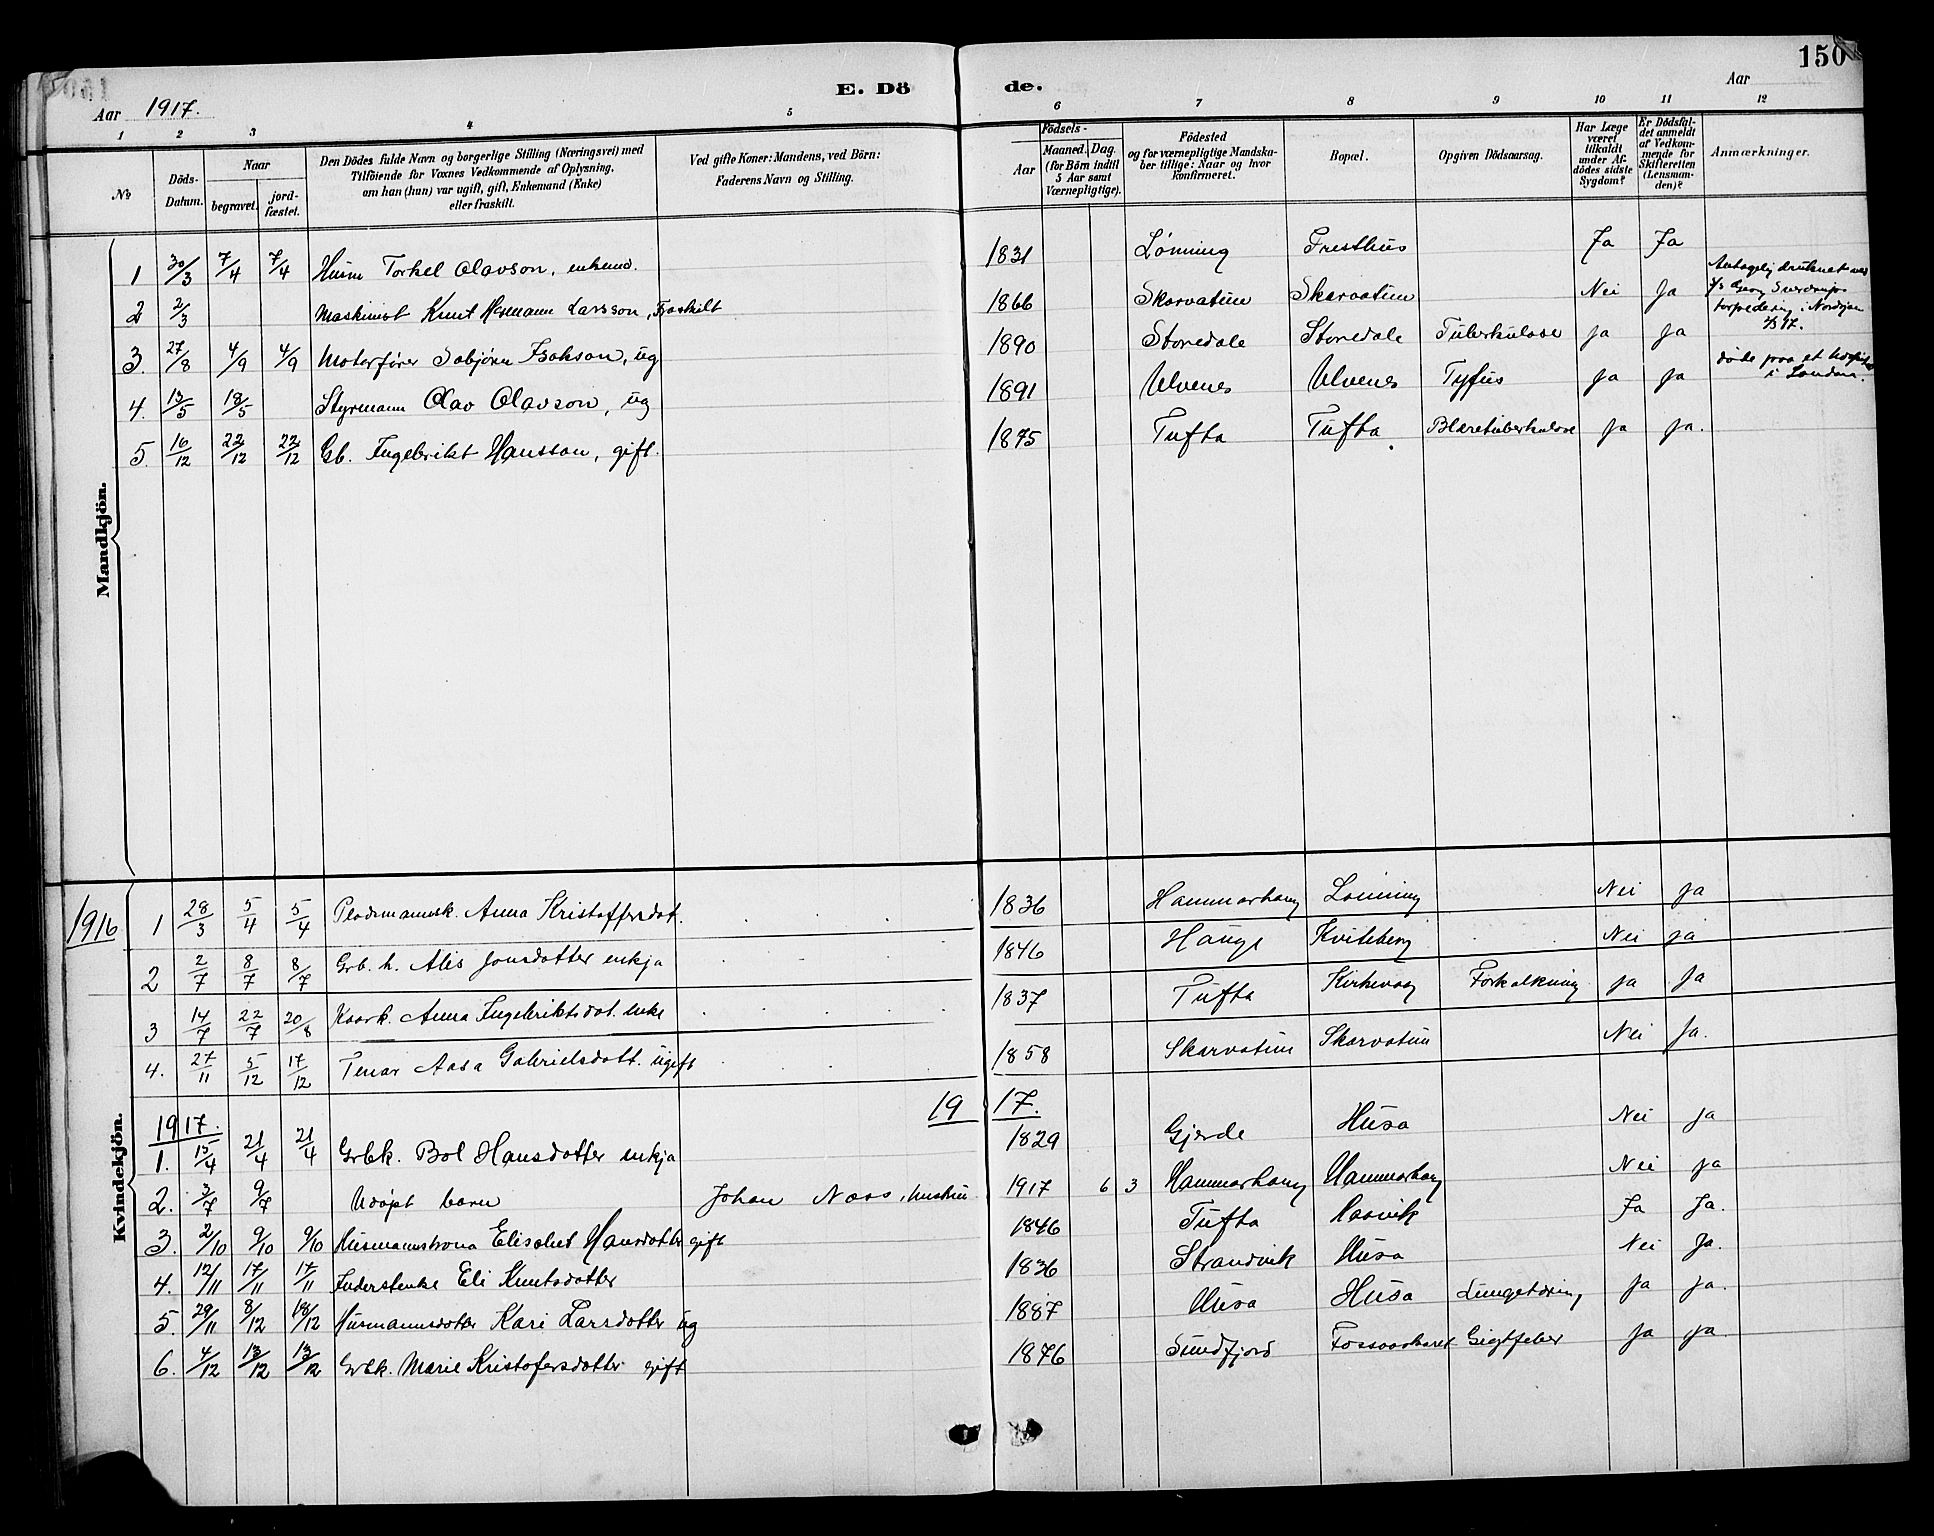 150
E. Dö de.
Aar 1917. Aar
1 2 3 4 5 6 7 8 9 10 11 12
No
Döds-Datum.
Naar
begravet.
jord-fæstet.
Den Dödes fulde Navn og borgerlige Stilling (Næringsvei) med
Tilföiende for Voxnes Vedkommende af Oplysning,
om han (hun) var ugift, gift, Enkemand (Enke)
eller fraskilt.
Ved gifte Koner: Mandens, ved Börn:
Faderens Navn og Stilling.
Födsels-
Aar
Maaned. Dag.
(for Börn indtil
5 Aar samt
Værnepligtige).
Födested
og for værnepligtige Mandska-
ber tillige: Naar og hvor
konfirmeret.
Bopæl.
Opgiven Dödsaarsag.
Har Læge
været
tilkaldt
under Af-
dödes sidste
Sygdom?
Er Dödsfal-
det anmeldt
af Vedkom-
mende for
Skifteretten
(Lensman-
den)?
Anmærkninger.
Mandkjön.
1 30/3 7/4 7/4 Husm Torkel Olavson, enkem. 1831 Lønning Tresthus Ja Ja
2 2/3 Maskinist Knut Hermann Larsson, Fraskilt 1866 Skarvatun Skarvatun Nei Ja Antagelig druknet ved
s/s Georg Sverdrups
torpedering i Nordsjøen
2/3 17.
3. 27/8 4/9 4/9 Motorfører Sabjørn Isakson, ug 1890 Storedale Storedale Tuberkulose Ja Ja
4. 13/5 18/5 Styrmann Olav Olavson, ug 1891 Ulvenes Ulvenes Tyfus Ja Ja døde paa et hospital
i London.
5. 16/12 22/12 22/12 Gb. Ingebrikt Hansson, gift. 1875 Tufta Tufta Blæretuberkulose Ja Ja.
Kvindekjön.
1916
1 28/3 5/4 5/4 Pladsmannsk. Anna Kristoffersdot. 1836 Hammarhaug Lønning Nei Ja
2 2/7 8/7 8/7 Grb. k. Alis Jonsdotter enkja 1846 Hauge Kviteberg Nei ja
3 14/7 22/7 20/8 Kaark. Anna Ingebriktsdot. enke 1837 Tufta Kirkevaag Forkalkning ja Ja
4. 27/11 5/12 17/12 Tenar Aasa Gabrielsdott. ugift 1858 Skarvatun Skarvatun Nei Ja.
1917. 19 17.
1. 15/4 21/4 21/4 Grbk. Bol Hansdotter enkja 1829 Gjerde Husa Nei Ja
2. 3/7 9/7 Udøpt barn Johan Naas, 1917 6 3 Hammarhaug Hammarhaug Nei Ja
3. 2/10 9/10 9/10 Husmannskona Elisabet Hansdotter gift 1846 Tufta Naavik Ja Ja.
4. 12/11 17/11 17/11 Inderstenke Eli Knutsdotter 1836 Strandvik Husa Nei Ja.
5. 29/11 8/12 18/12 Husmannsdotter Kari Larsdotter ug 1887 Husa Husa Lungetæring Ja Ja.
6. 4/12 13/12 13/12 Grbk. Marie Kristofersdotter gift 1876 Sundfjord Fossvarharet Gigtfeber Ja Ja.